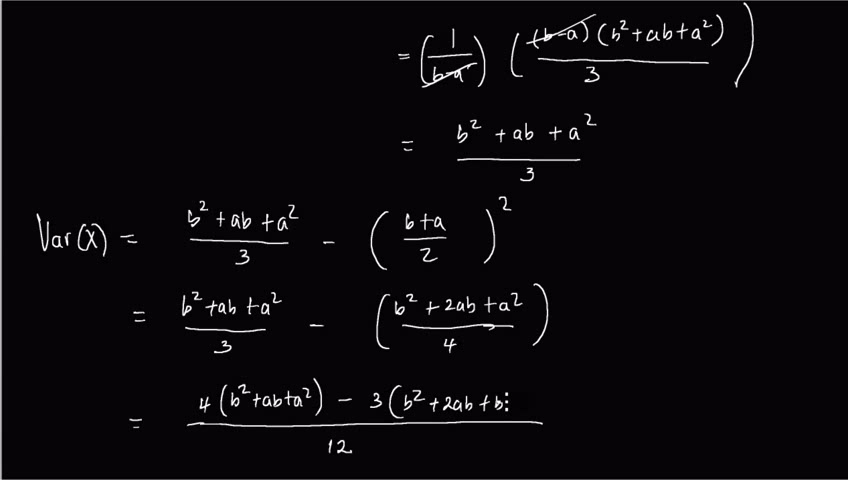 = (1/(b-a)) ((b-a)(b²+ab+a²)/3)
= (b²+ab+a²)/3
Var(X) = (b²+ab+a²)/3 - ((b+a)/2)²
= (b²+ab+a²)/3 - ((b²+2ab+a²)/4)
= (4(b²+ab+a²) - 3(b²+2ab+b)/12